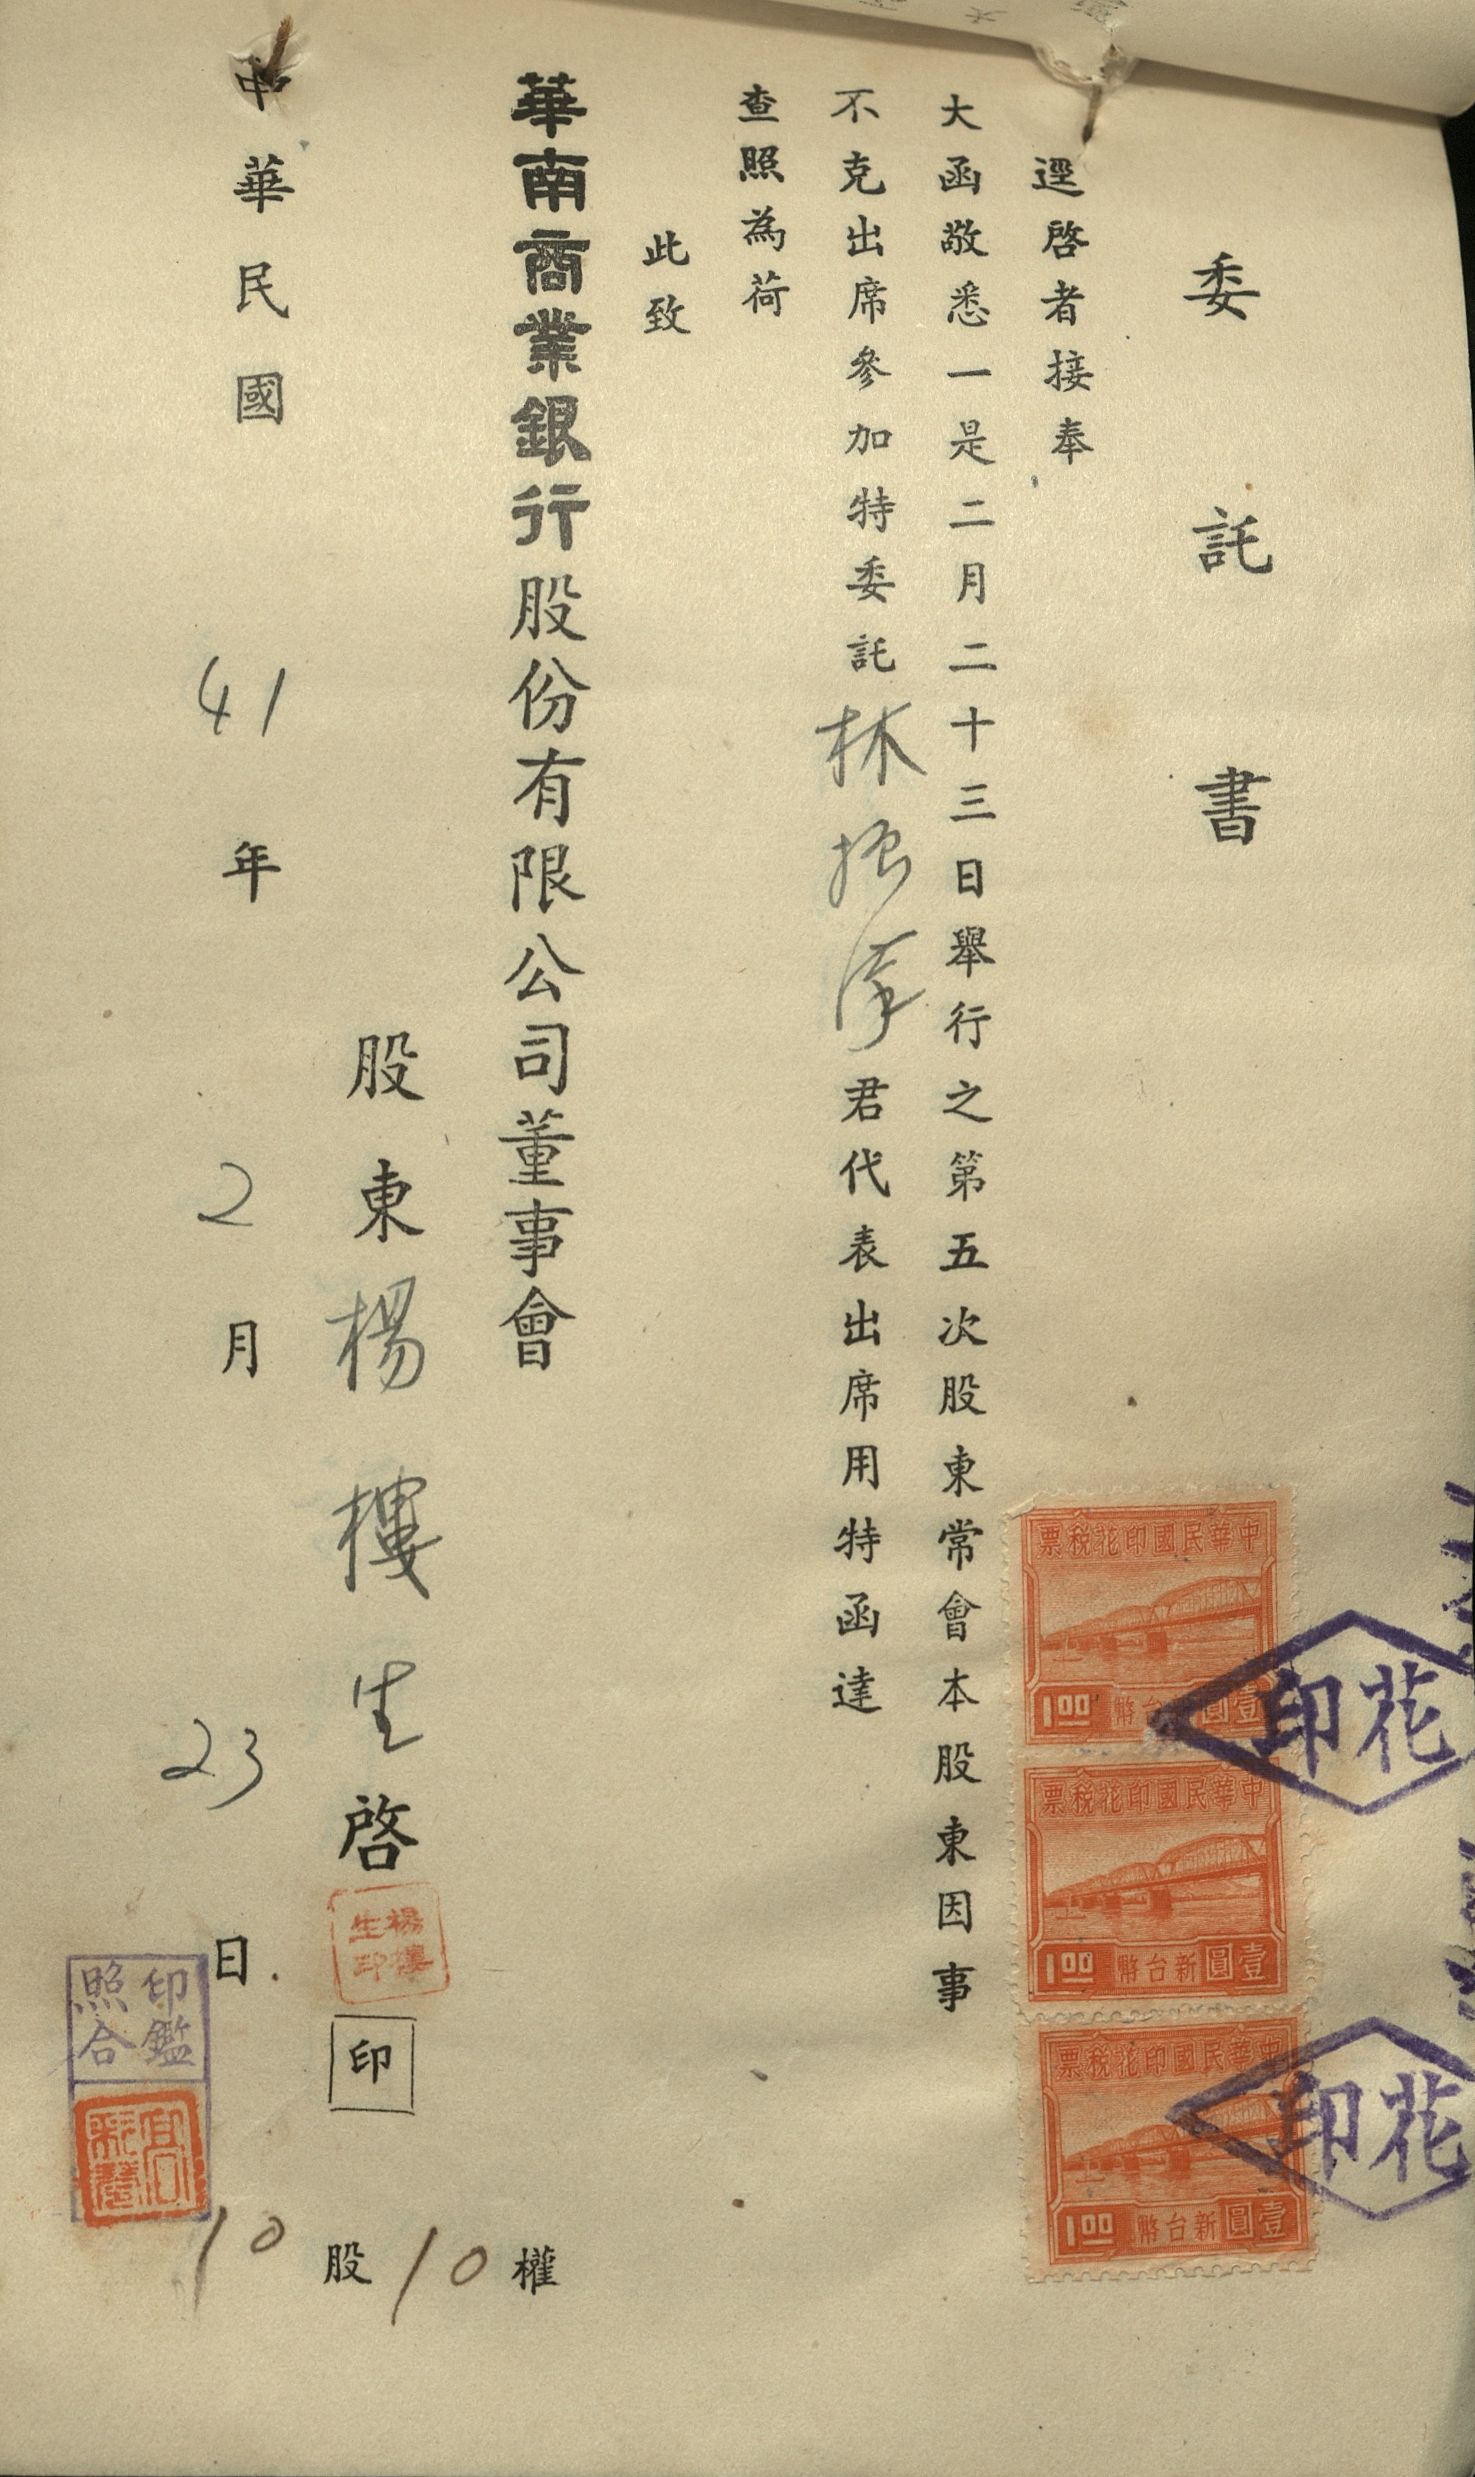 委託書
逕啓者接奉
大函敬悉一是二月二十三日舉行之第五次股東常會本股東因事
不克出席參加特委託林 君代表出席用特函達
查照為荷
此致
華南商業銀行股份有限公司董事會
股東楊樓生啓
楊樓生印
印
10股10權
中華民國41年2月23日
印鑑照合
中華民國印花稅票
壹圓新台幣1.00
中華民國印花稅票
壹圓新台幣1.00
中華民國印花稅票
壹圓新台幣1.00
花印
花印